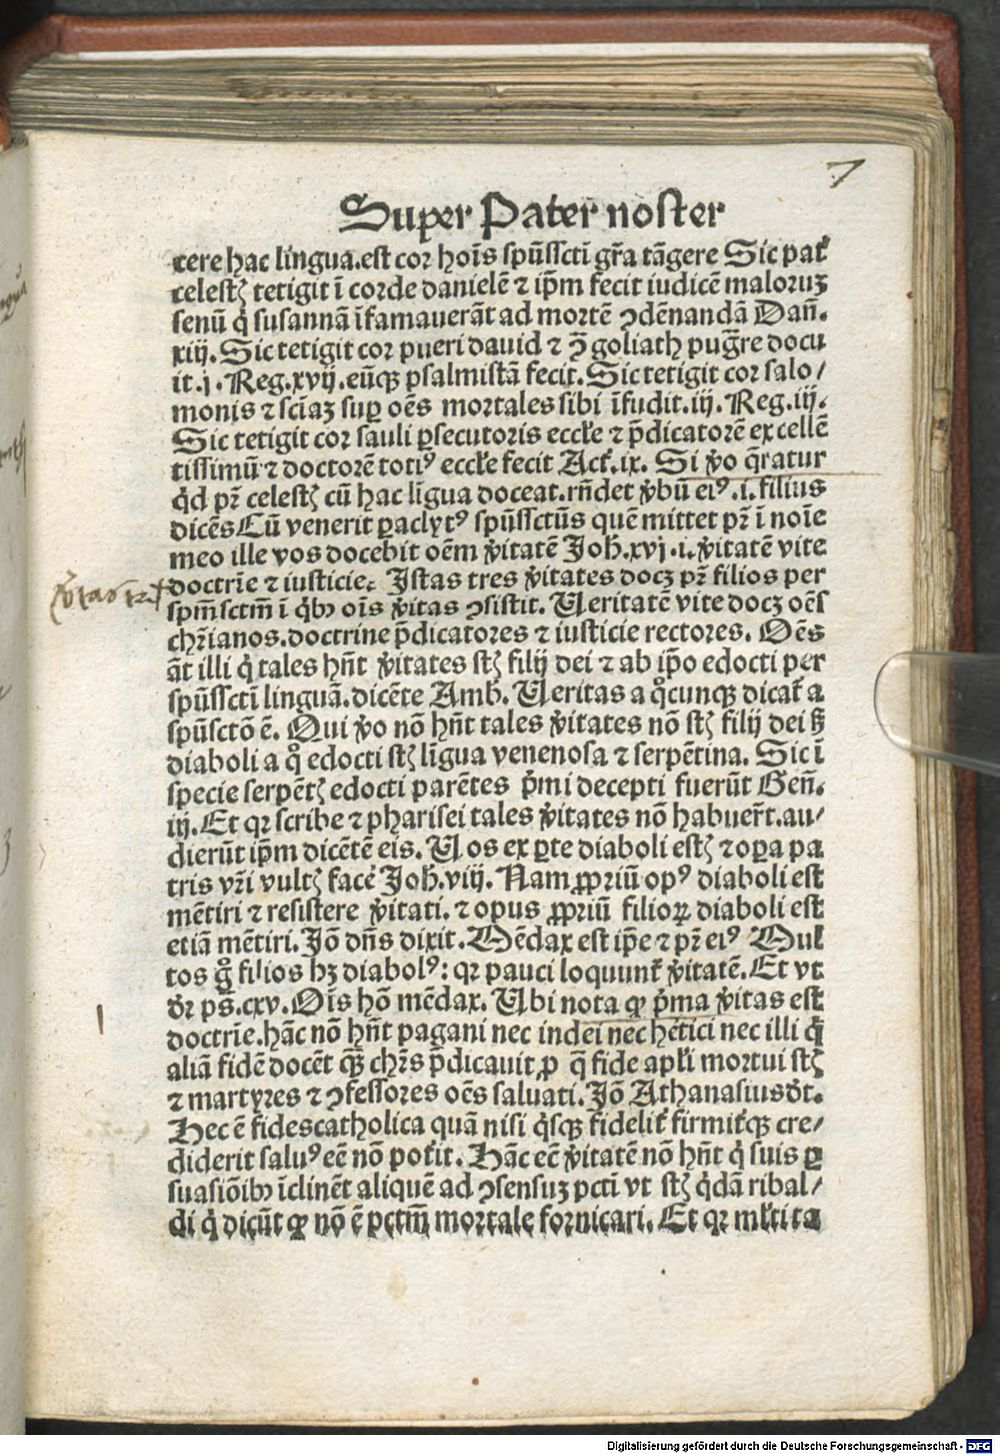 7
Super Pater noster
cere hac lingua.est cor hoīs spūssctī gr̄a tāgere Sic pat᷑
celestꝫ tetigit ī corde danielē ⁊ ip̄m fecit iudicē maloruꝫ
senū q̇ susannā īfamauerāt ad mortē ꝯdēnandā Dan̄.
xiij. Sic tetigit cor pueri dauid ⁊ ꝯ̄ goliath pug̃re docu
it.j. Reg.xvij.eūqꝫ psalmistā fecit. Sic tetigit cor salo/
monis ⁊ sciāꝫ suꝑ oēs mortales sibi īfudit.iij. Reg.iij.
Sic tetigit cor sauli ꝑsecutoris eccłe ⁊ p̄dicatorē excellē
tissimū ⁊ doctorē totiꝰ eccłe fecit Act᷑.ix. Si ṽo q̄ratur
q̇d pr̄ celestꝫ cū hac līgua doceat.rn̄det ṽbū eiꝰ.i.filius
dicēs Cū venerit ꝑaclytꝰ spūssctūs quē mittet pr̄ ī noīe
meo ille vos docebit oēm ṽitatē Joh̄.xvj.i.ṽitatē vite
doctrīe ⁊ iusticie. Istas tres ṽitates docꝫ pr̄ filios per
spm̄sctm̄ ī q̇bꝰ oīs ṽitas ꝯsistit. Ueritatē vite docꝫ oēs
chr̄ianos.doctrine p̄dicatores ⁊ iusticie rectores. Oēs
āt illi q̇ tales hn̄t ṽitates stꝫ filij dei ⁊ ab ip̄o edocti per
spūssctī linguā.dicēte Amb̄. Ueritas a q̊cunqꝫ dicat᷑ a
spūsctō ē. Qui ṽo nō hn̄t tales ṽitates nō stꝫ filij dei sꝫ
diaboli a q̊ edocti stꝫ līgua venenosa ⁊ serpētina. Sic ī
specie serpētꝫ edocti parētes p̄mi decepti fuerūt Gen̄.
iij. Et qꝛ scribe ⁊ pharisei tales ṽitates nō habuer̄t.au/
dierūt ip̄m dicētē eis. Uos ex ꝑte diaboli estꝫ ⁊ oꝑa pa
tris vr̄i vultꝫ facē Joh̄.viij. Nam ꝓpriū opꝰ diaboli est
mētiri ⁊ resistere ṽitati.⁊ opus ꝓpriū filioꝝ diaboli est
etiā mētiri. Jō dn̄s dixit. Mēdax est ip̄e ⁊ pr̄ eiꝰ Mul
tos g̊ filios hꝫ diabolꝰ: qꝛ pauci loquunt᷑ ṽitatē. Et vt
dꝛ ps̄.cxv. Oīs hō mēdax. Ubi nota ꝙ p̄ma ṽitas est
doctrīe.hāc nō hn̄t pagani nec indei nec hētici nec illi q̇
aliā fidē docēt qꝫ̄ chr̄s p̄dicauit ꝓ q̄ fide apłi mortui stꝫ
⁊ martyres ⁊ ꝯfessores oēs saluati. Jō Athanasius dt̄.
Hec ē fides catholica quā nisi q̇sqꝫ fidelit᷑ firmit᷑qꝫ cre/
diderit saluꝰ eē nō pot᷑it. Hāc eē ṽitatē nō hn̄t q̇ suis ꝑ
suasiōibꝰ īclinēt aliquē ad ꝯsensuꝫ pctī vt stꝫ q̇dā ribal/
di q̇ dicūt ꝙ nō ē pctm̄ mortale fornicari. Et qꝛ młti ta
Digitalisierung gefördert durch die Deutsche Forschungsgemeinschaft - DFG